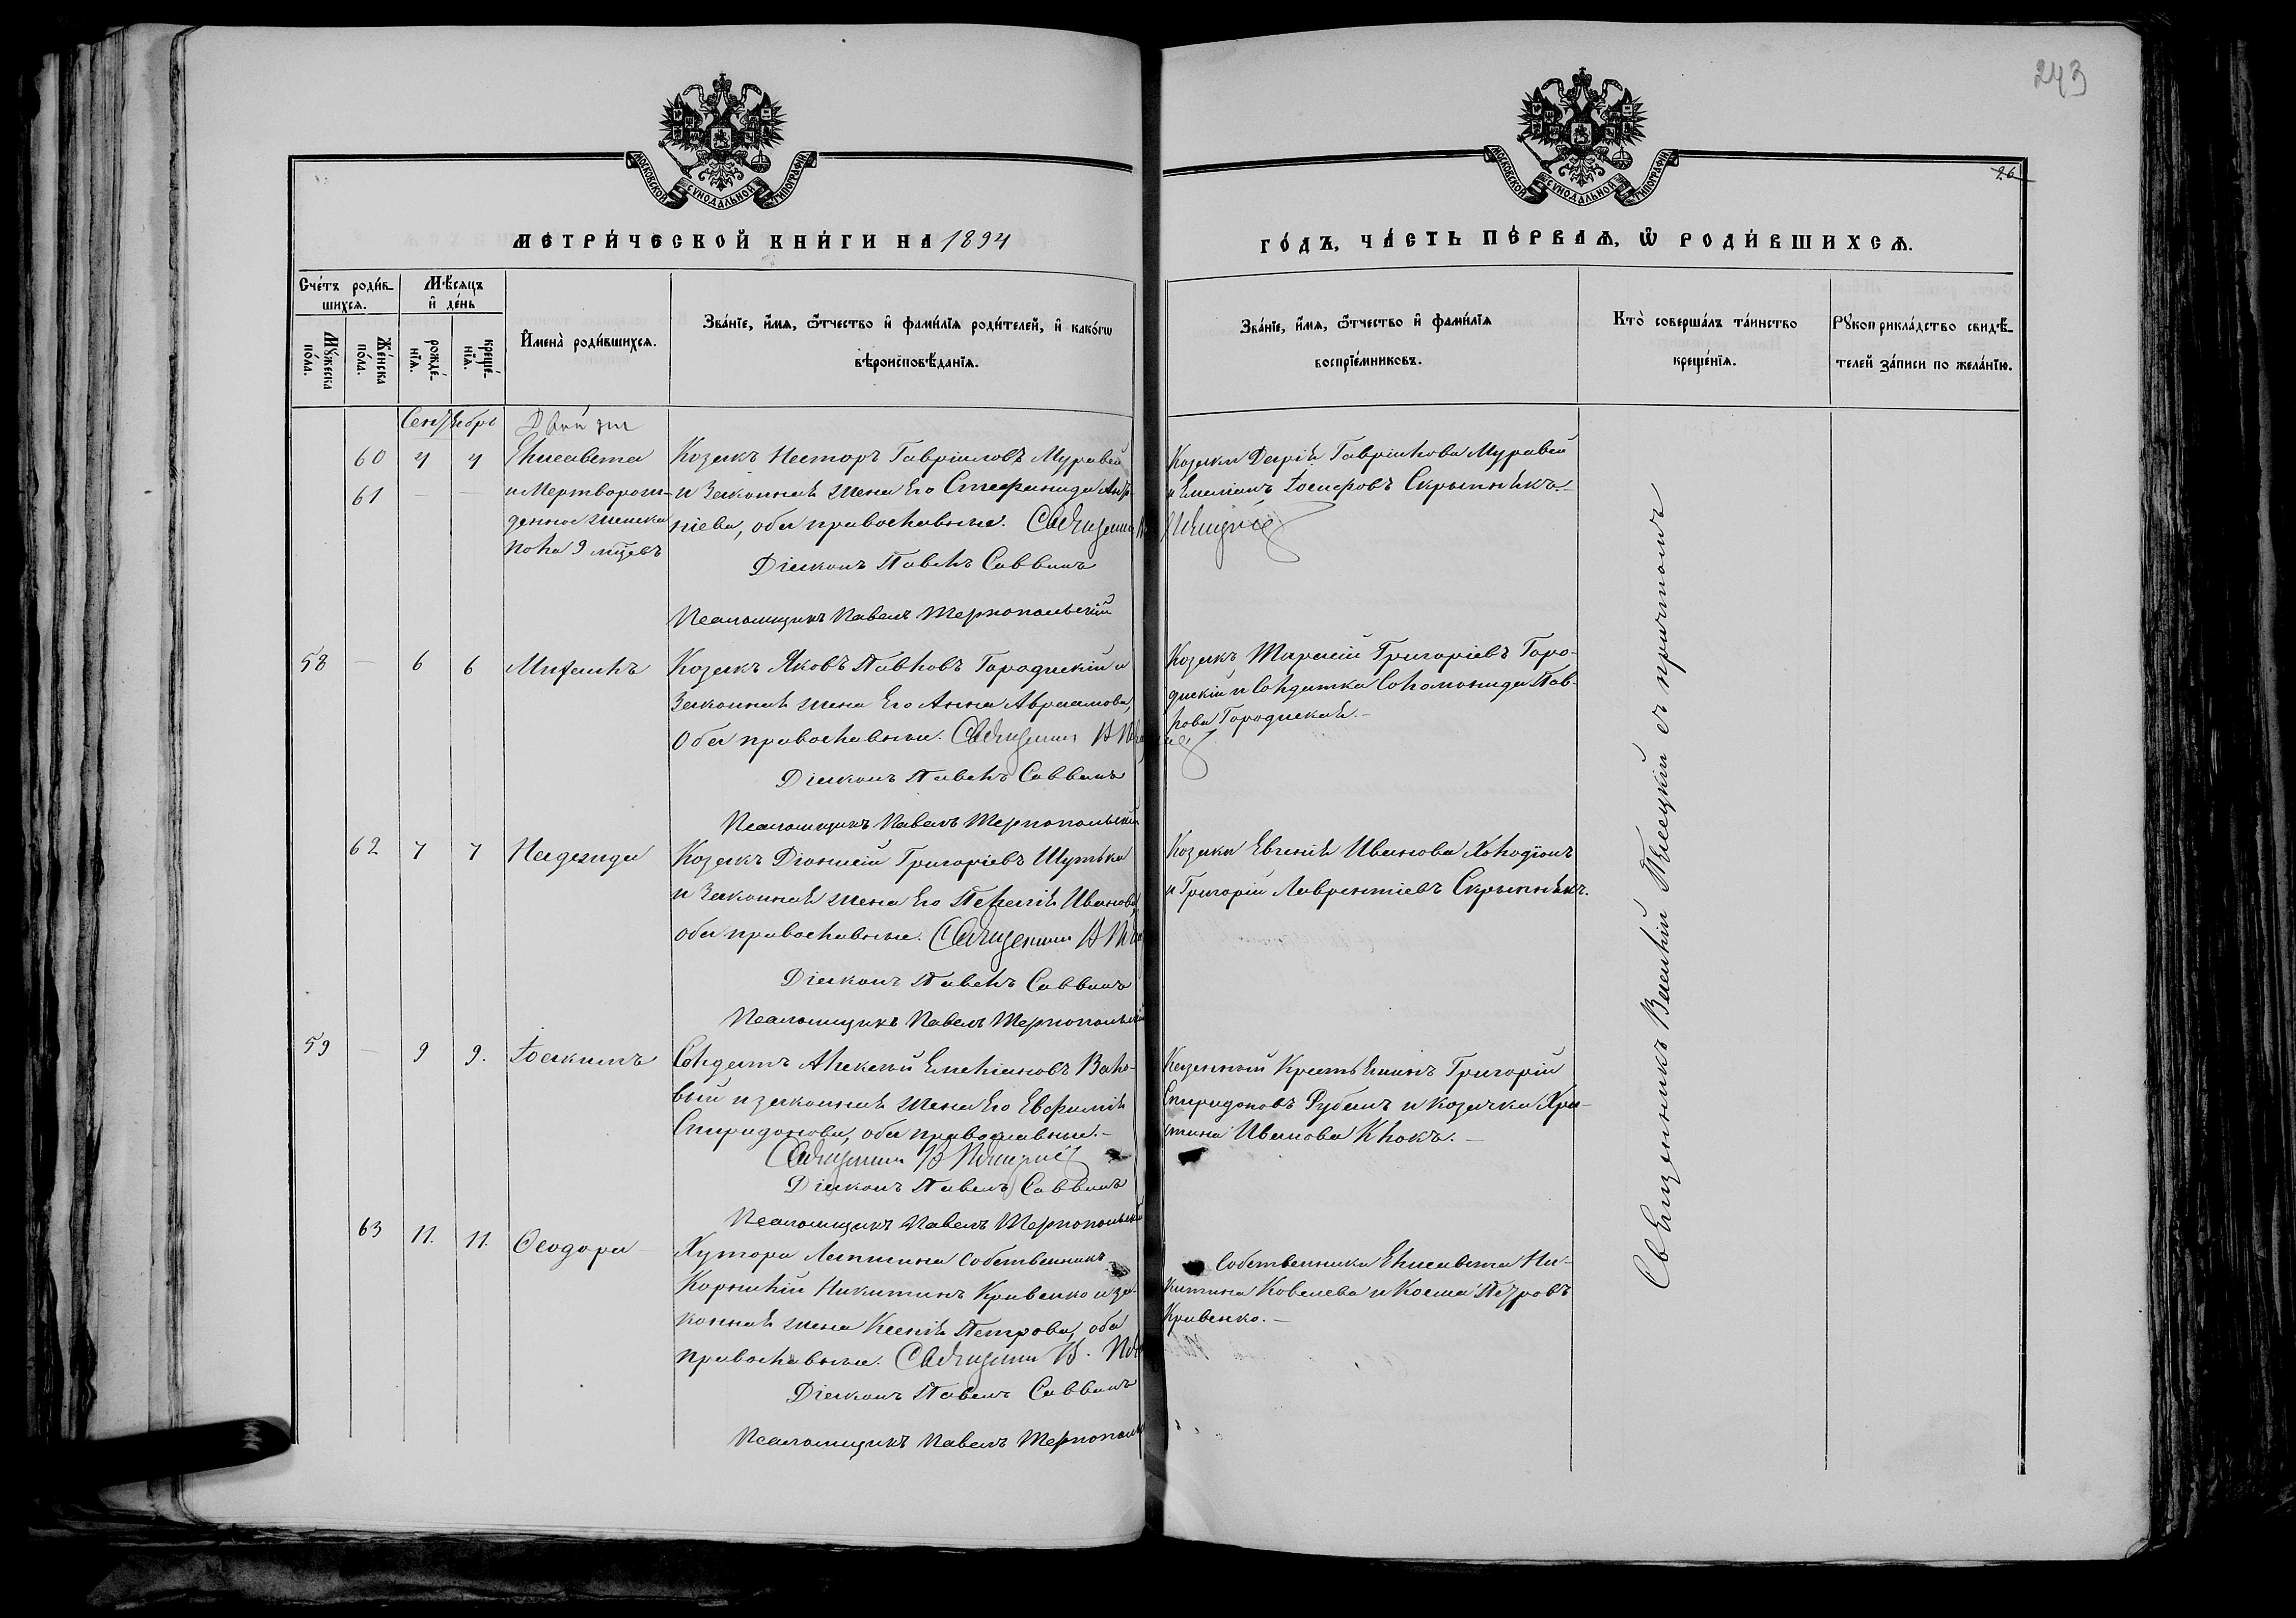 243
26
МОСКОВСКОЙ СѴНОДАЛЬНОЙ ТИПОГРАФІИ
МОСКОВСКОЙ СѴНОДАЛЬНОЙ ТИПОГРАФІИ
МЕТРИ́ЧЕСКОЙ КНИ́ГИ НА 1894
ГО́ДЪ, ЧА́СТЬ ПЕ́РВАѦ, Ѡ РОДИ́ВШИХСѦ.
Сче́тъ роди́в-
шихсѧ.
Мѣ́сѧцъ
и҆ де́нь
Му́жеска
по́ла.
Же́нска
по́ла.
рожде́-
нїѧ.
креще́-
нїѧ.
И҆мена̀ роди́вшихсѧ.
Зва́нїе, и҆́мѧ, ѻ҆́тчество и҆ фами́лїѧ роди́телей, и҆ како́гѡ
вѣроисповѣ́данїѧ.
Зва́нїе, и҆́мѧ, ѻ҆́тчество и҆ фами́лїѧ
воспрїе́мниковъ.
Кто̀ соверша́лъ та́инство
креще́нїѧ.
Рꙋкоприкла́дство свидѣ́-
телей за́писи по жела́нїю.
Сентябрь
60 4 4 Елисавета
61 - -
и Мертворож-
денное женска
пола 9 мцевъ
Козакъ Несторъ Гавріиловъ Муравей
и Законная жена Его Стефанида Анд-
ріева, оба православные. Священникъ
Діаконъ Павелъ Саввинъ
Псаломщикъ Павелъ Тернопольскій
Козачка Дарія Гавріилова Муравей
и Емеліанъ Іосифовъ Скрыпникъ.-
58 - 6 6 Михаилъ
Козакъ Яковъ Павловъ Городискій и
Законная жена Его Анна Авраамова,
Оба православные. Священникъ В
Діаконъ Павелъ Саввинъ
Псаломщикъ Павелъ Тернопольскій
Козакъ Тарасій Григоріевъ Горо-
дискій и Солдатка Соломонида Пав-
лова Городиская.-
62 7 7 Надежда
Козакъ Діонисій Григоріевъ Шутька
и Законная жена Его Пелагія Иванова,
оба православные. Священникъ В
Діаконъ Павелъ Саввинъ
Псаломщикъ Павелъ Тернопольскій
Козачка Евгенія Иванова Холодіонъ
и Григорій Лаврентіевъ Скрыпникъ.
59 - 9 9. Іоакимъ
Солдатъ Алексѣй Емеліановъ Вало-
вый и законная жена Его Евфимія
Спиридонова, оба православные.-
Священникъ В
Діаконъ Павелъ Саввинъ
Псаломщикъ Павелъ Тернопольскій
Казенный Крестьянинъ Григорій
Спиридоновъ Рубанъ и козачка Хри-
стина Иванова Клокъ.-
63 11. 11. Ѳеодора
Хутора Лапшина собственникъ
Корнилій Никитинъ Кривенко и за-
конная жена Ксенія Петрова, оба
православные. Священникъ В.
Діаконъ Павелъ Саввинъ
Псаломщикъ Павелъ Тернополь
Собственника Елисавета Ни-
китина Ковалева и Косма Петровъ
Кривенко.-
Священникъ Василій Пѣшецкій съ причтомъ